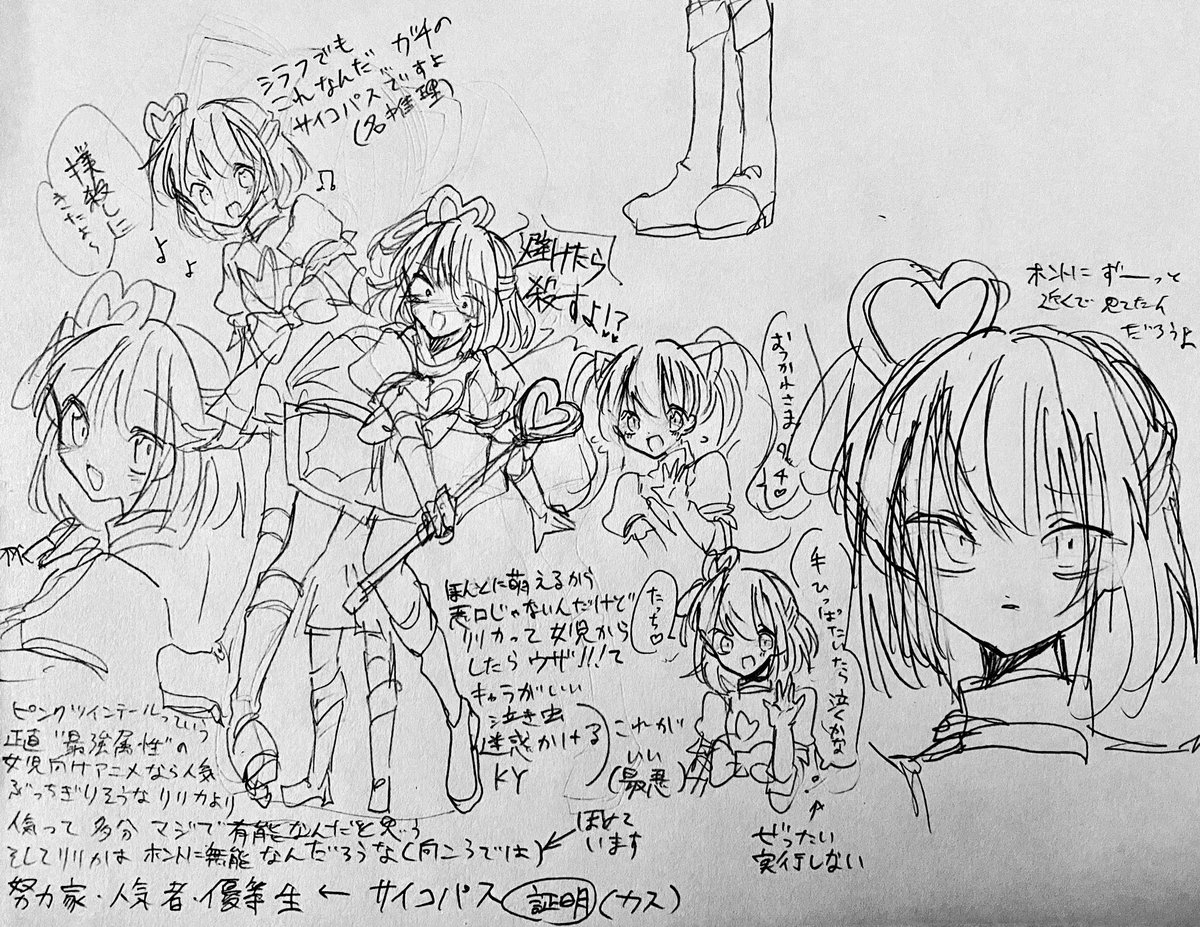 シラフでも
これなんだ ガチの
サイコパスですよ
(名推理)
撲殺しに
きたよ
避けたら
殺すよ!?
おつかれさま
タッチ♡
ホントに ずーっと
近くで 見てたん
だろうよ
たっち♡
手ひっぱたいたら 泣くかな
ぜったい
実行しない
ほんとに萌えるから
悪口じゃないんだけど
リリカって 女児から
したら ウザ!!!て
キャラがいい
泣き虫
迷惑かける
KY
これが
いい
(最悪)
ピンクツインテールっていう
正直"最強属性"の
女児向けアニメなら人気
ぶっちぎりそうな リリカより
人気って 多分 マジで 有能なんだと思う
そしてリリカは ホントに無能 なんだろうな(向こうでは)
ほめて
います
努力家・人気者・優等生 ← サイコパス 証明 (カス)